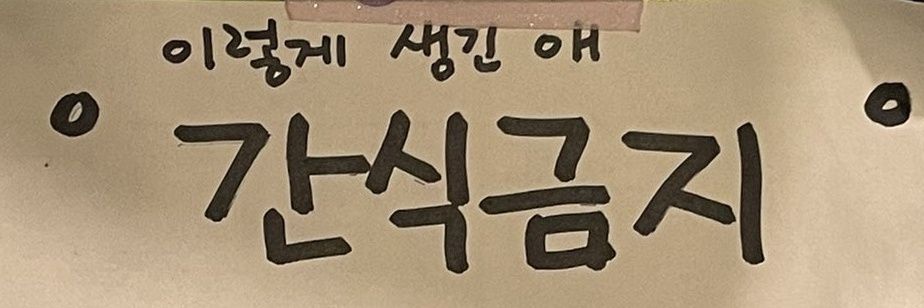 이렇게 생긴 애
간식금지